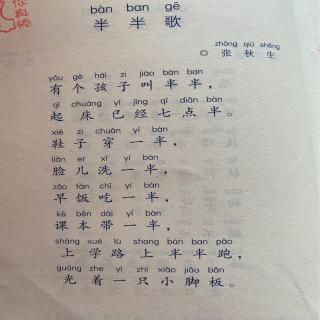 bàn ban gē
半半歌
zhāng qiū shēng
◎张秋生
yǒu gè hái zi jiào bàn ban
有个孩子叫半半,
qǐ chuáng yǐ jīng qī diǎn bàn
起床已经七点半。
xié zi chuān yí bàn
鞋子穿一半,
liǎn er xǐ yí bàn
脸儿洗一半,
zǎo fàn chī yí bàn
早饭吃一半,
kè běn dài yí bàn
课本带一半,
shàng xué lù shang bàn ban pǎo
上学路上半半跑,
guāng zhe yì zhī xiǎo jiǎo bǎn
光着一只小脚板。